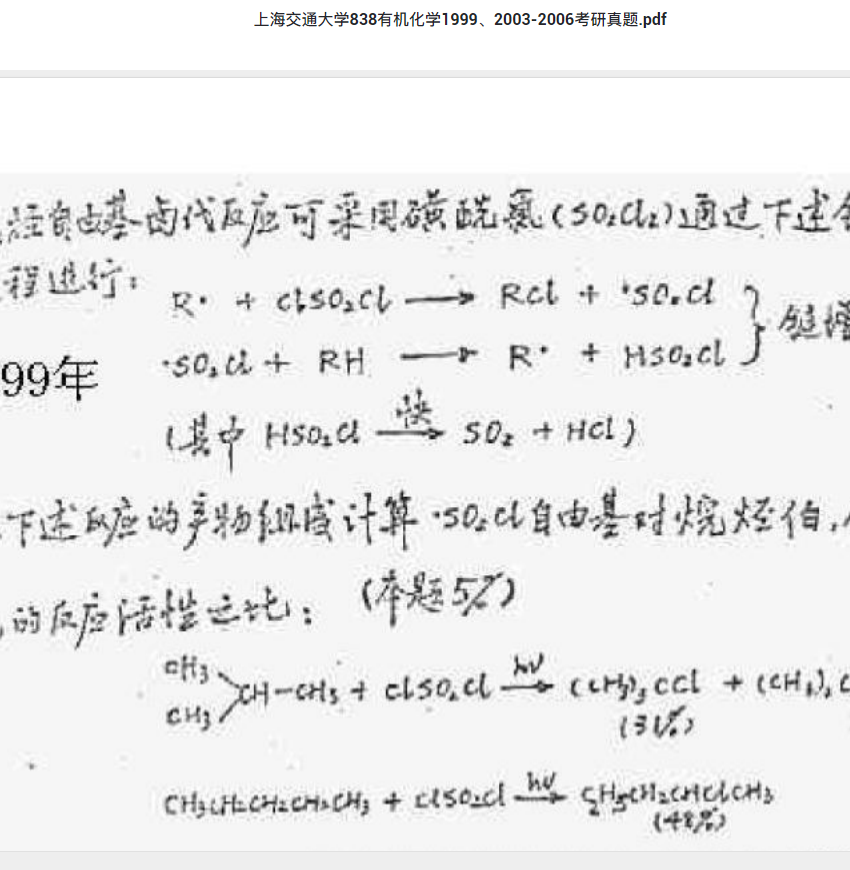 上海交通大学838有机化学1999、2003-2006考研真题.pdf
烃自由基卤代反应可采用磺酰氯(SO₂Cl₂)通过下述
程进行:
R· + ClSO₂Cl ⟶ RCl + ·SO₂Cl
·SO₂Cl + RH ⟶ R· + HSO₂Cl } 链增
99年
(其中 HSO₂Cl ⟶快 SO₂ + HCl)
下述反应的产物组成计算 ·SO₂Cl自由基对烷烃伯,
的反应活性之比: (本题5%)
CH₃
CH-CH₃ + ClSO₂Cl ⟶hν (CH₃)₃CCl + (CH₃)₂C
CH₃ (31%)
CH₃CH₂CH₂CH₂CH₃ + ClSO₂Cl ⟶hν C₂H₅CH₂CHClCH₃
(48%)